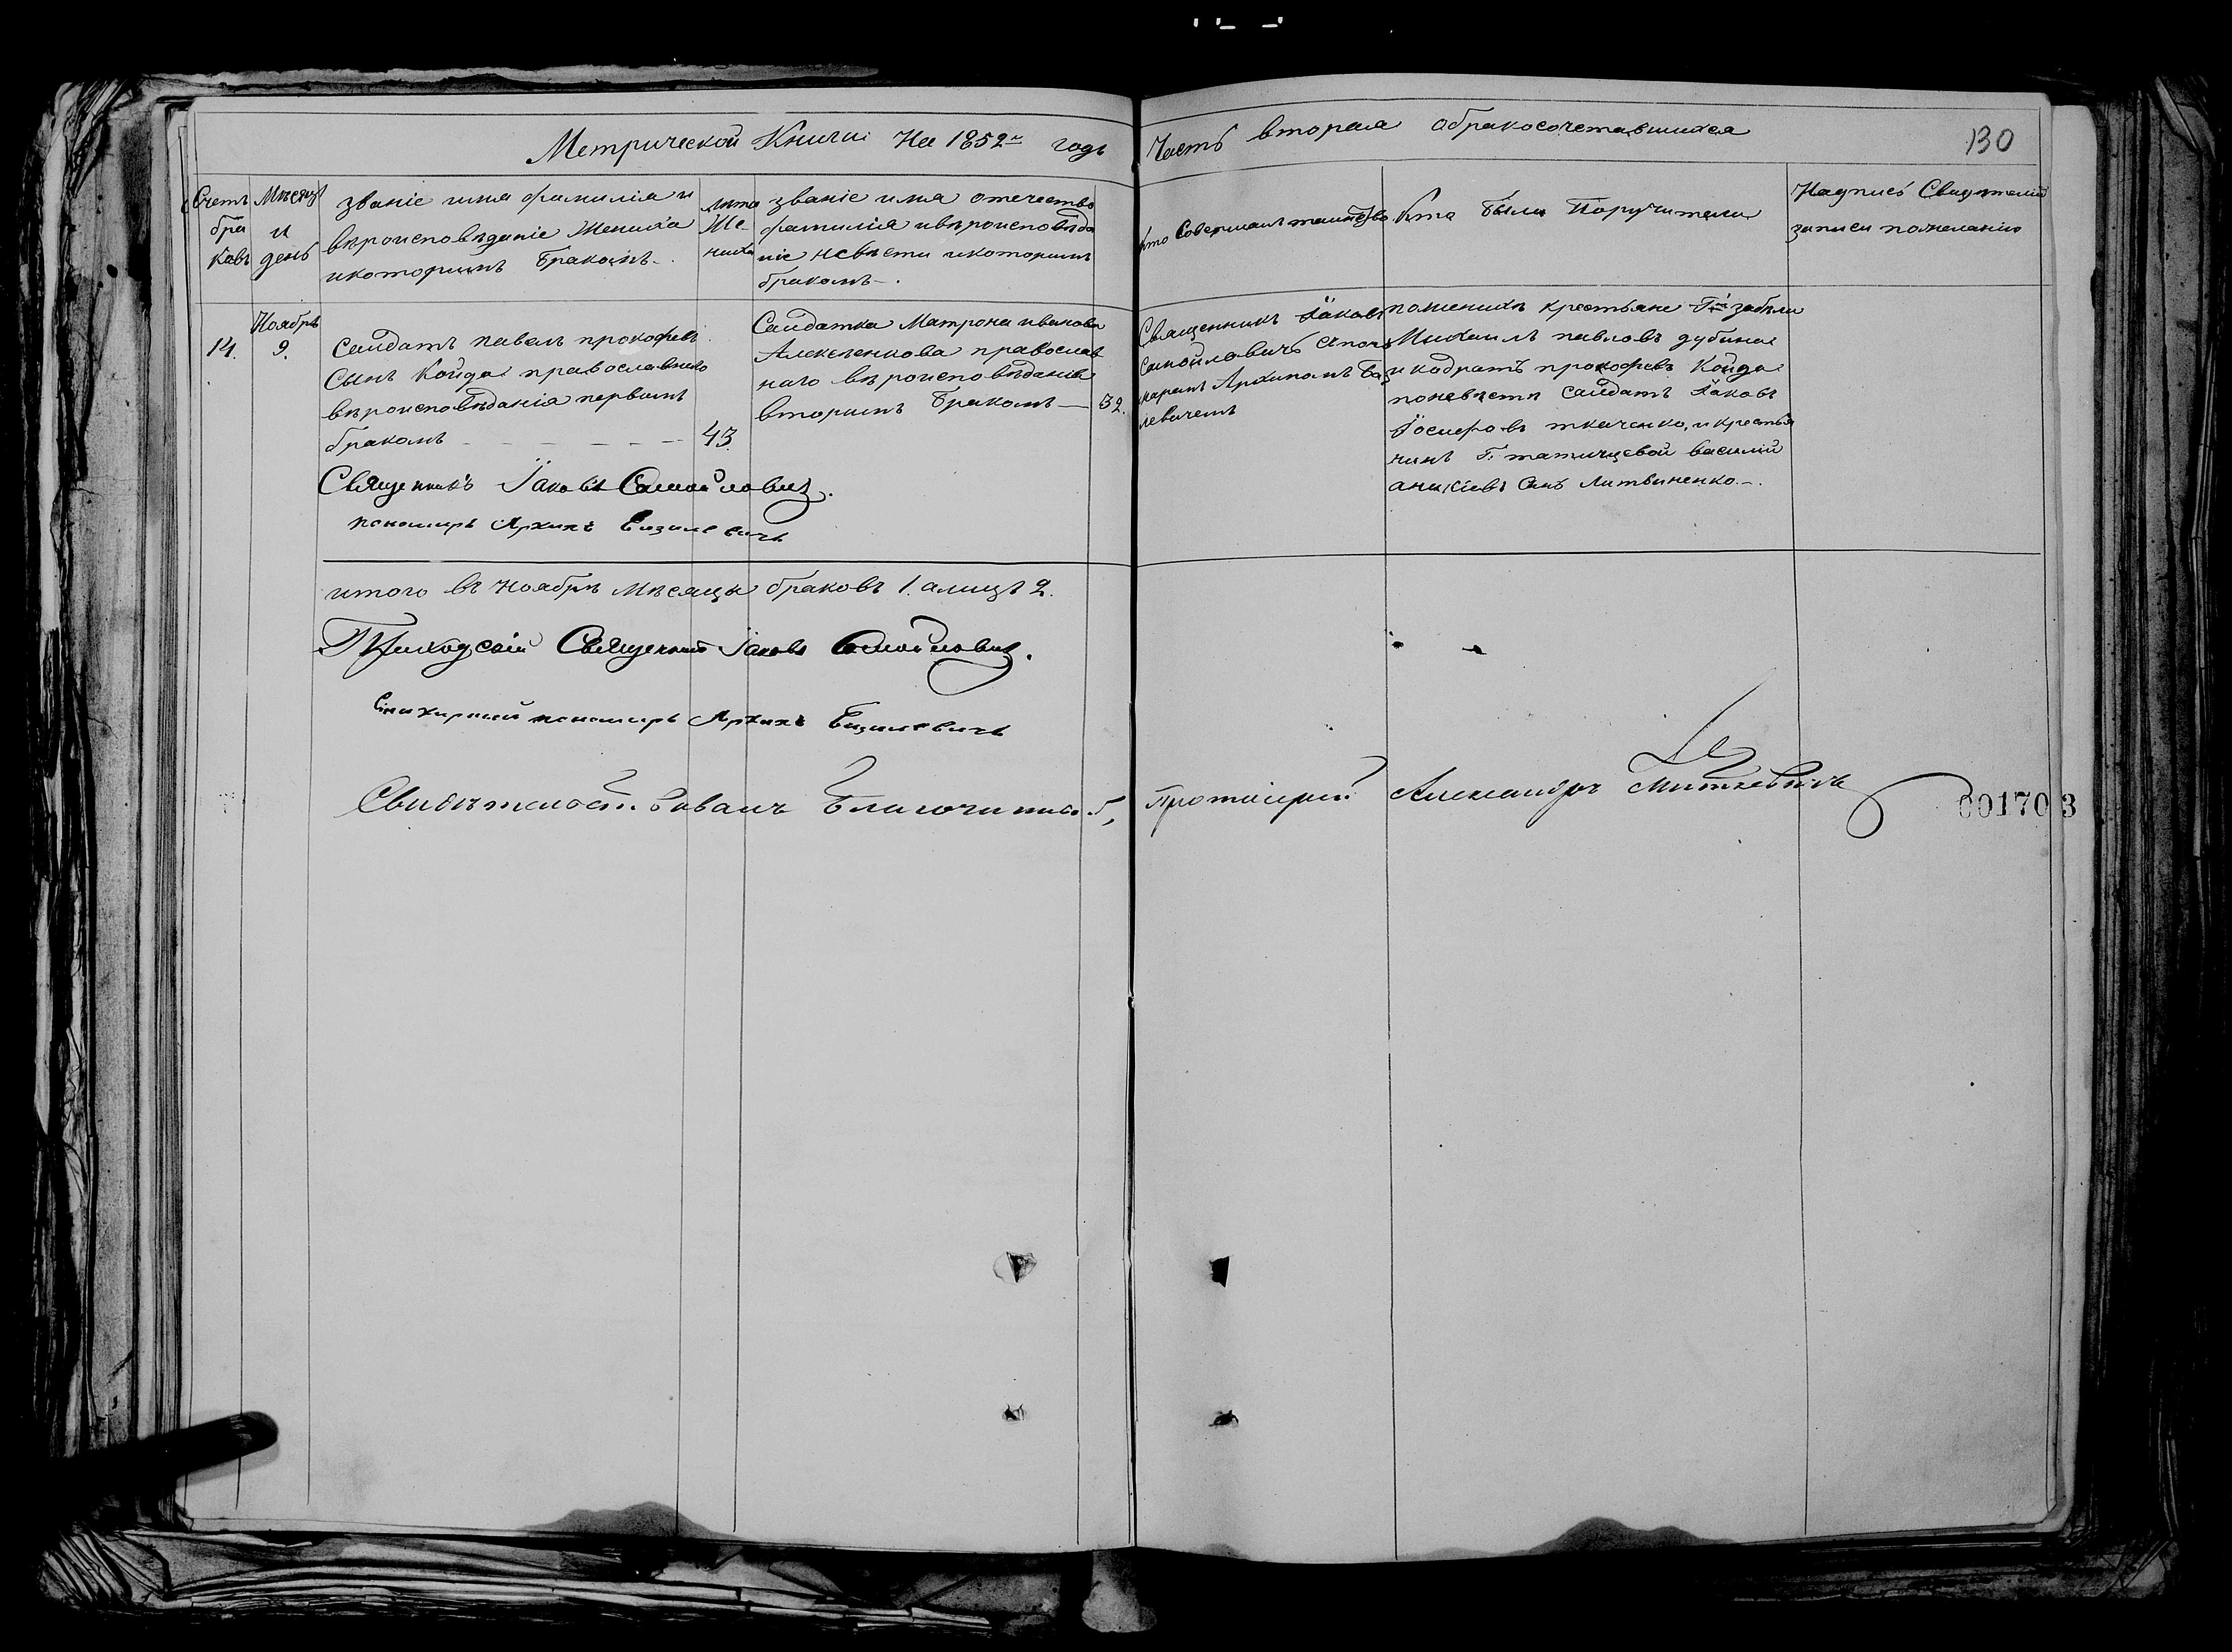 Метрической Книги На 1852й годъ
Часть вторая обракосочетавшихся
130
Счетъ браковъ
Мѣсяцъ и день
званіе имя фамилія и
вѣроисповѣданіе Жениха
икоторимъ бракомъ
лѣта Жениха
званіе имя отечество
фамилія ивѣроисповѣда
ніе невѣсти икоторимъ
бракомъ
Кто Совершалъ таинство
Кто были Поручители
Надпись Свидѣтелей
записи пожеланію
14.
Ноября
9.
Салдатъ павелъ прокофевъ
Сынъ Койда православнаго
вѣроисповѣданія первымъ
бракомъ
43
Салдатка Матрона иванова
Алексеенкова православ
наго вѣроисповѣданія
вторимъ бракомъ — 32.
Священникъ Іаковъ
Самойловичъ Спono
маремъ Архипомъ Ба
зилевичемъ
поженихѣ крестьяне Г. забѣли
Михаилъ павловъ дубина
и кодратъ прокофевъ Койда
поневѣсти салдатъ Іаковъ
Іосифовъ ткаченко, и крестья
нинъ Г. татищевой василий
аникіевъ Сынъ Литвиненко.
Священникъ Іаковъ Самойловичъ.
пономарь Архипъ Базилевичъ
итого въ Ноябрѣ Мѣсяцѣ браковъ 1. алицъ 2.
Приходскій Священникъ Іаковъ Самойловичъ.
пономарь Архипъ Базилевичъ
Свидѣтельствовалъ Благочинный Протоіерей Александръ Миткевичъ
001703